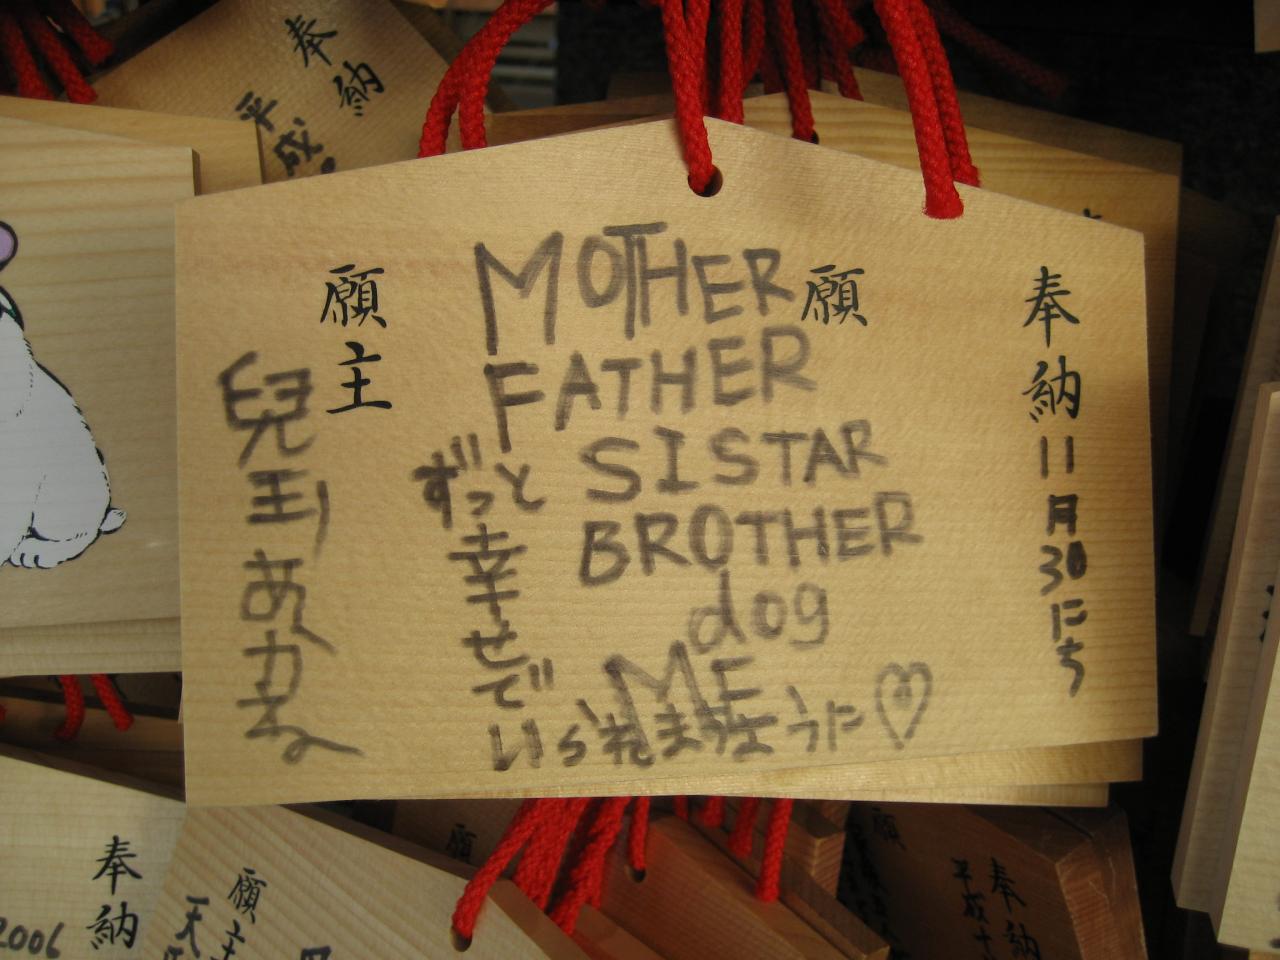 奉納 11月30にち
願
MOTHER
FATHER
SISTAR
BROTHER
dog
ME
ずっと
幸せで
いられますように♡
願主
兒玉 あかね
奉納
平成
奉納
2006
願主
天
願
奉納
平成十
願